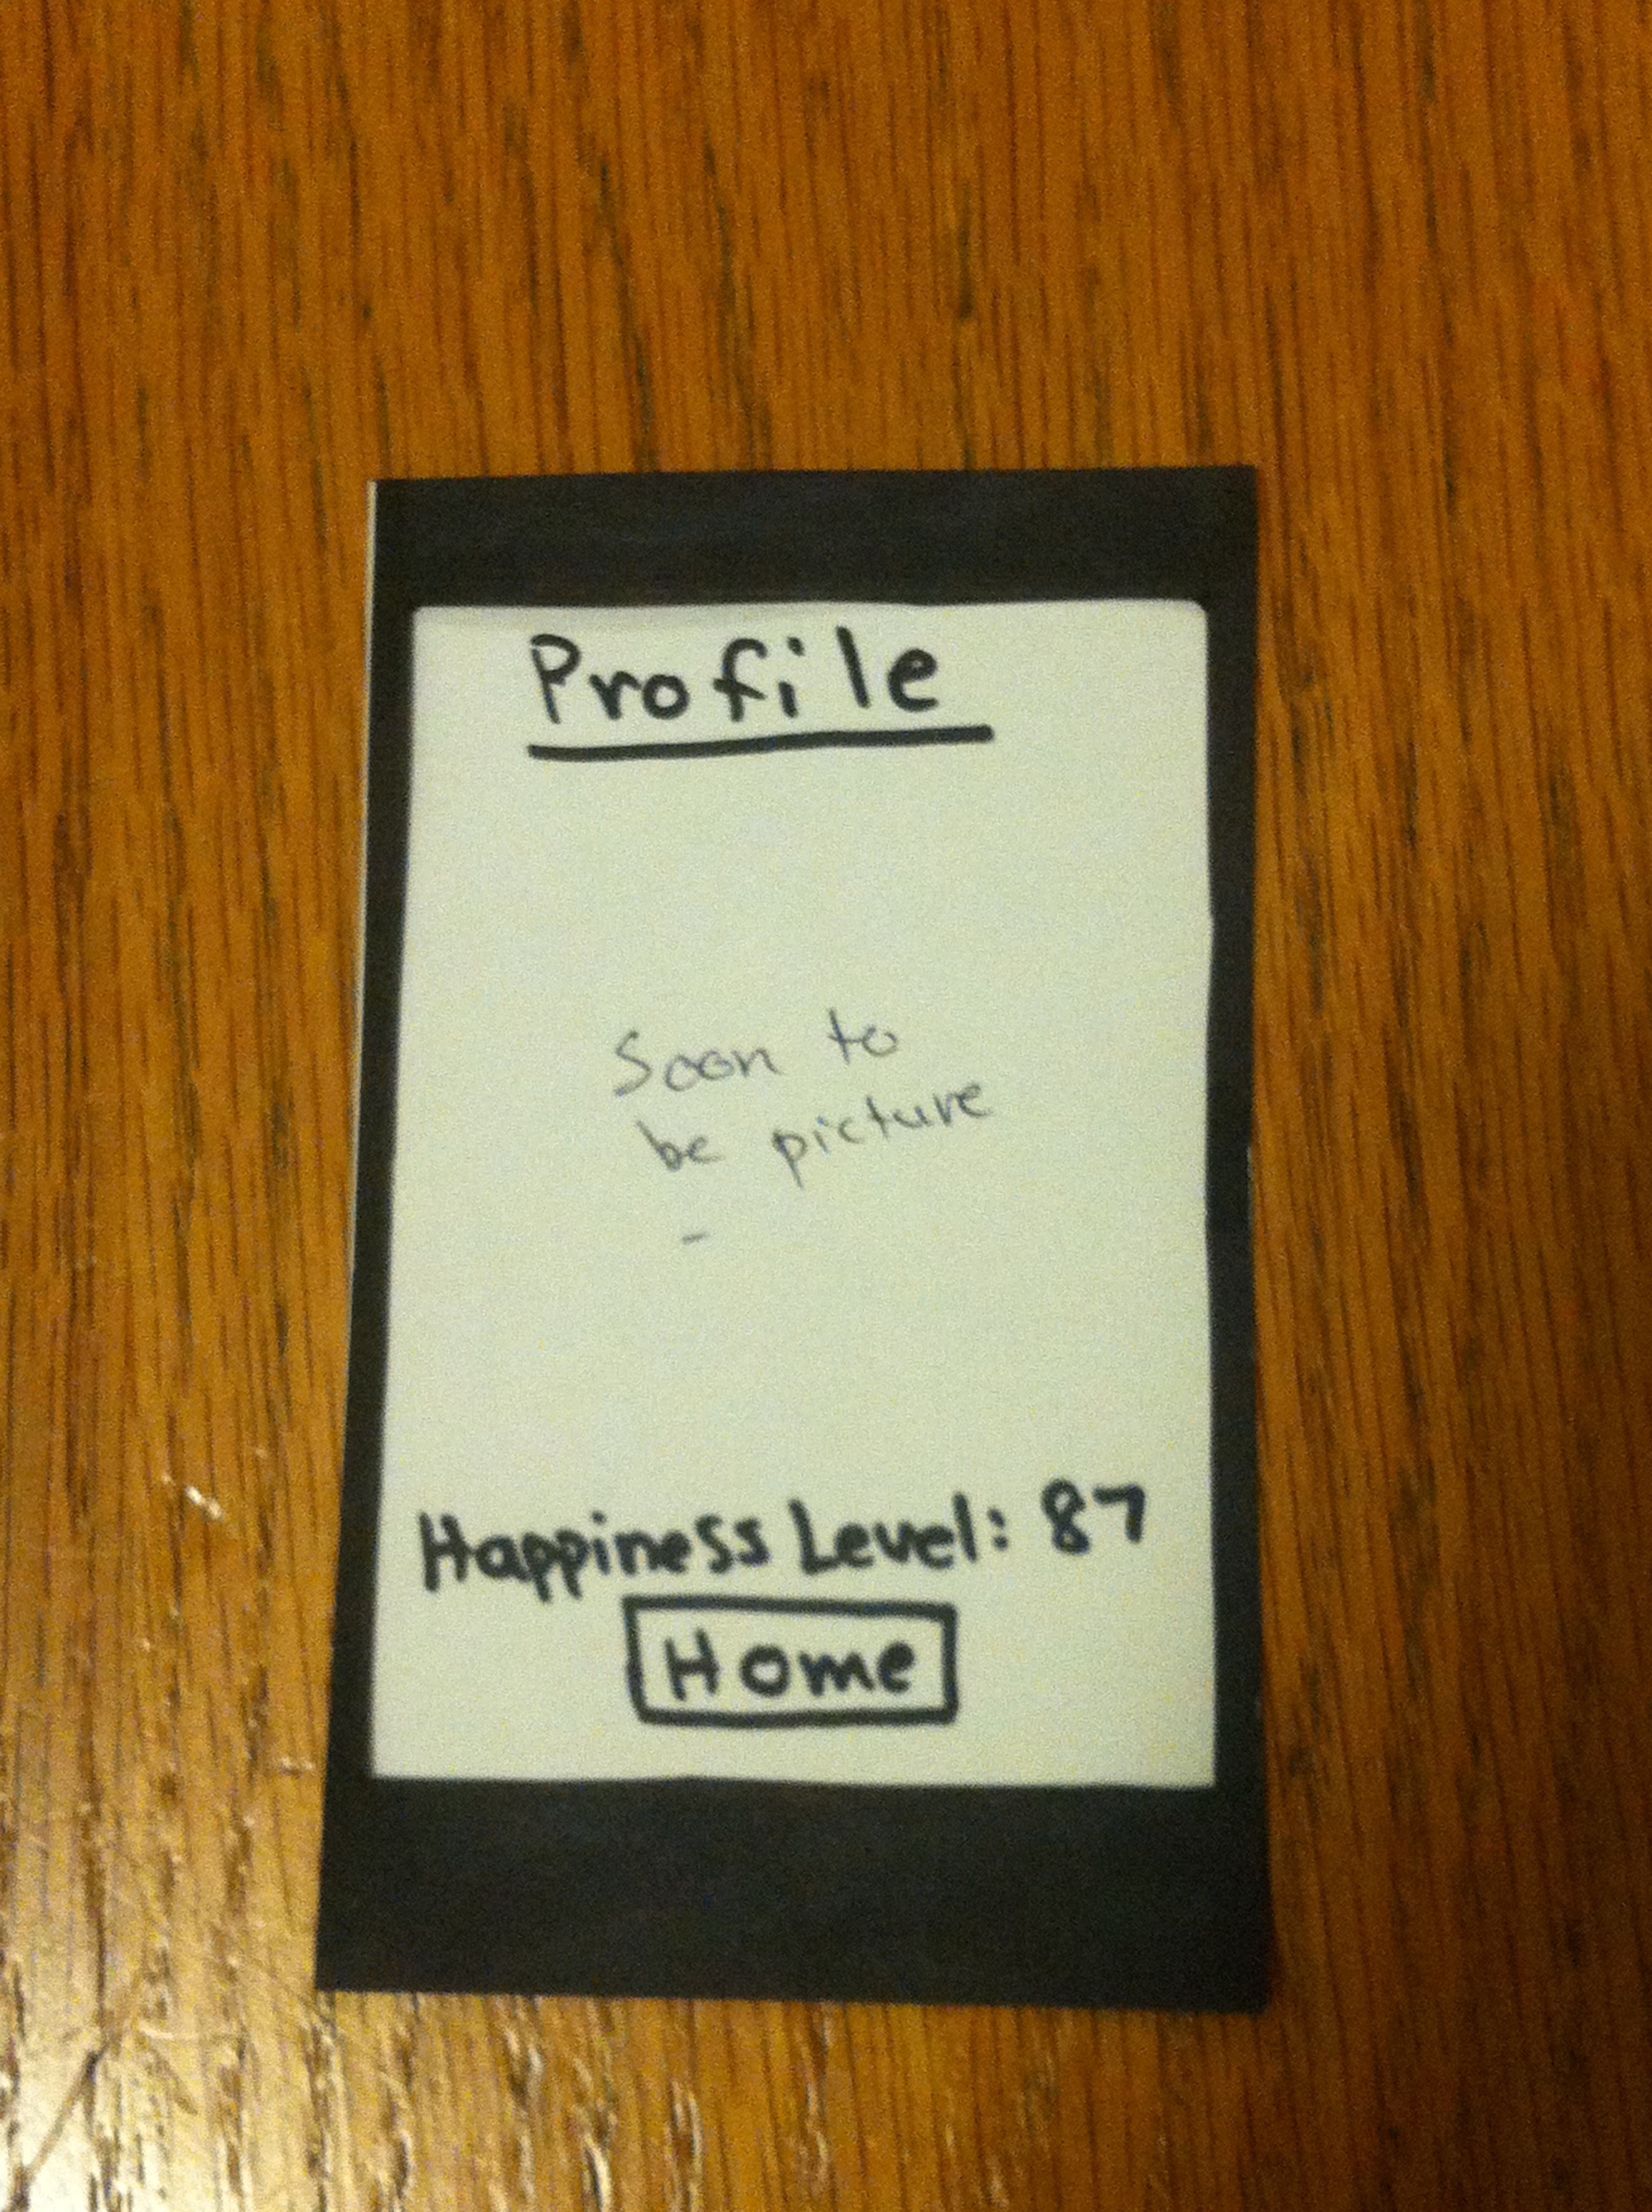 Profile
Soon to
be picture
-
Happiness Level: 87
Home